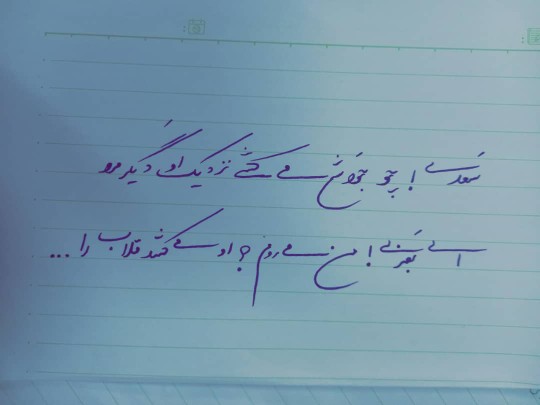 سعدی! چو جورش می کشی نزدیک او دیگر مرو
ای بی بصر! من می روم؟ او می کشد قلاب را...